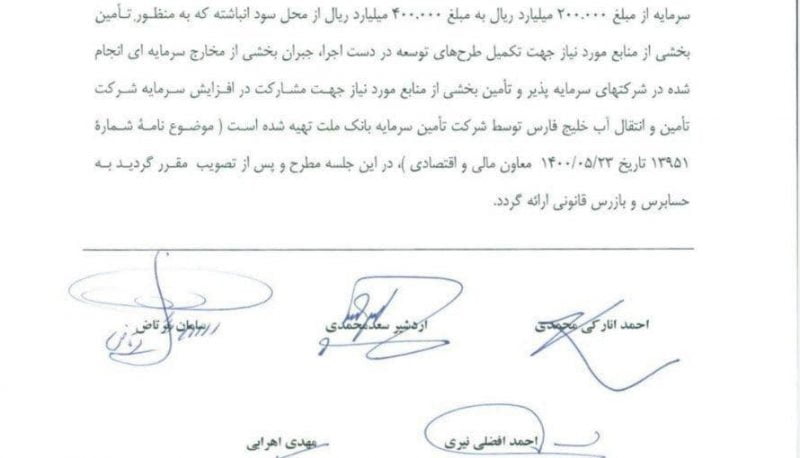 سرمایه از مبلغ ۲۰۰.۰۰۰ میلیارد ریال به مبلغ ۴۰۰.۰۰۰ میلیارد ریال از محل سود انباشته که به منظور تأمین
بخشی از منابع مورد نیاز جهت تکمیل طرح‌های توسعه در دست اجرا، جبران بخشی از مخارج سرمایه ای انجام
شده در شرکتهای سرمایه پذیر و تأمین بخشی از منابع مورد نیاز جهت مشارکت در افزایش سرمایه شرکت
تأمین و انتقال آب خلیج فارس توسط شرکت تأمین سرمایه بانک ملت تهیه شده است ( موضوع نامۀ شمارۀ
۱۳۹۵۱ تاریخ ۱۴۰۰/۰۵/۲۳ معاون مالی و اقتصادی )، در این جلسه مطرح و پس از تصویب مقرر گردید به
حسابرس و بازرس قانونی ارائه گردد.
احمد انارکی محمدی اردشیر سعدمحمدی سامان پرتاض
احمد افضلی نیری مهدی اهرابی